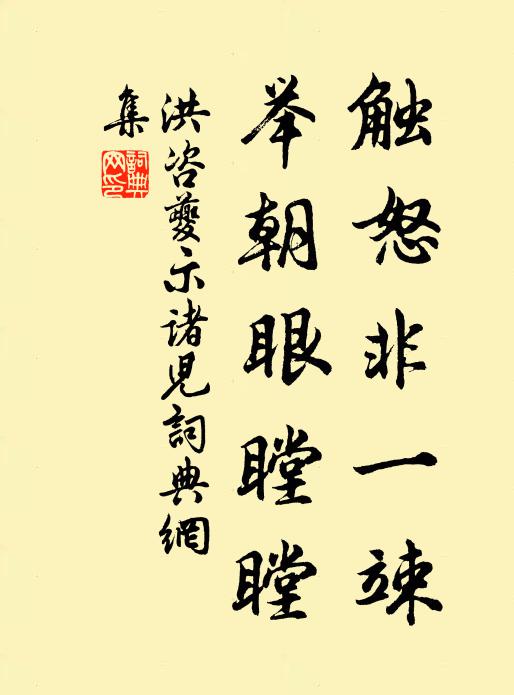 触怒非一竦
举朝眼瞠瞠
洪咨夔示诸児詞典網
集
詞典網印